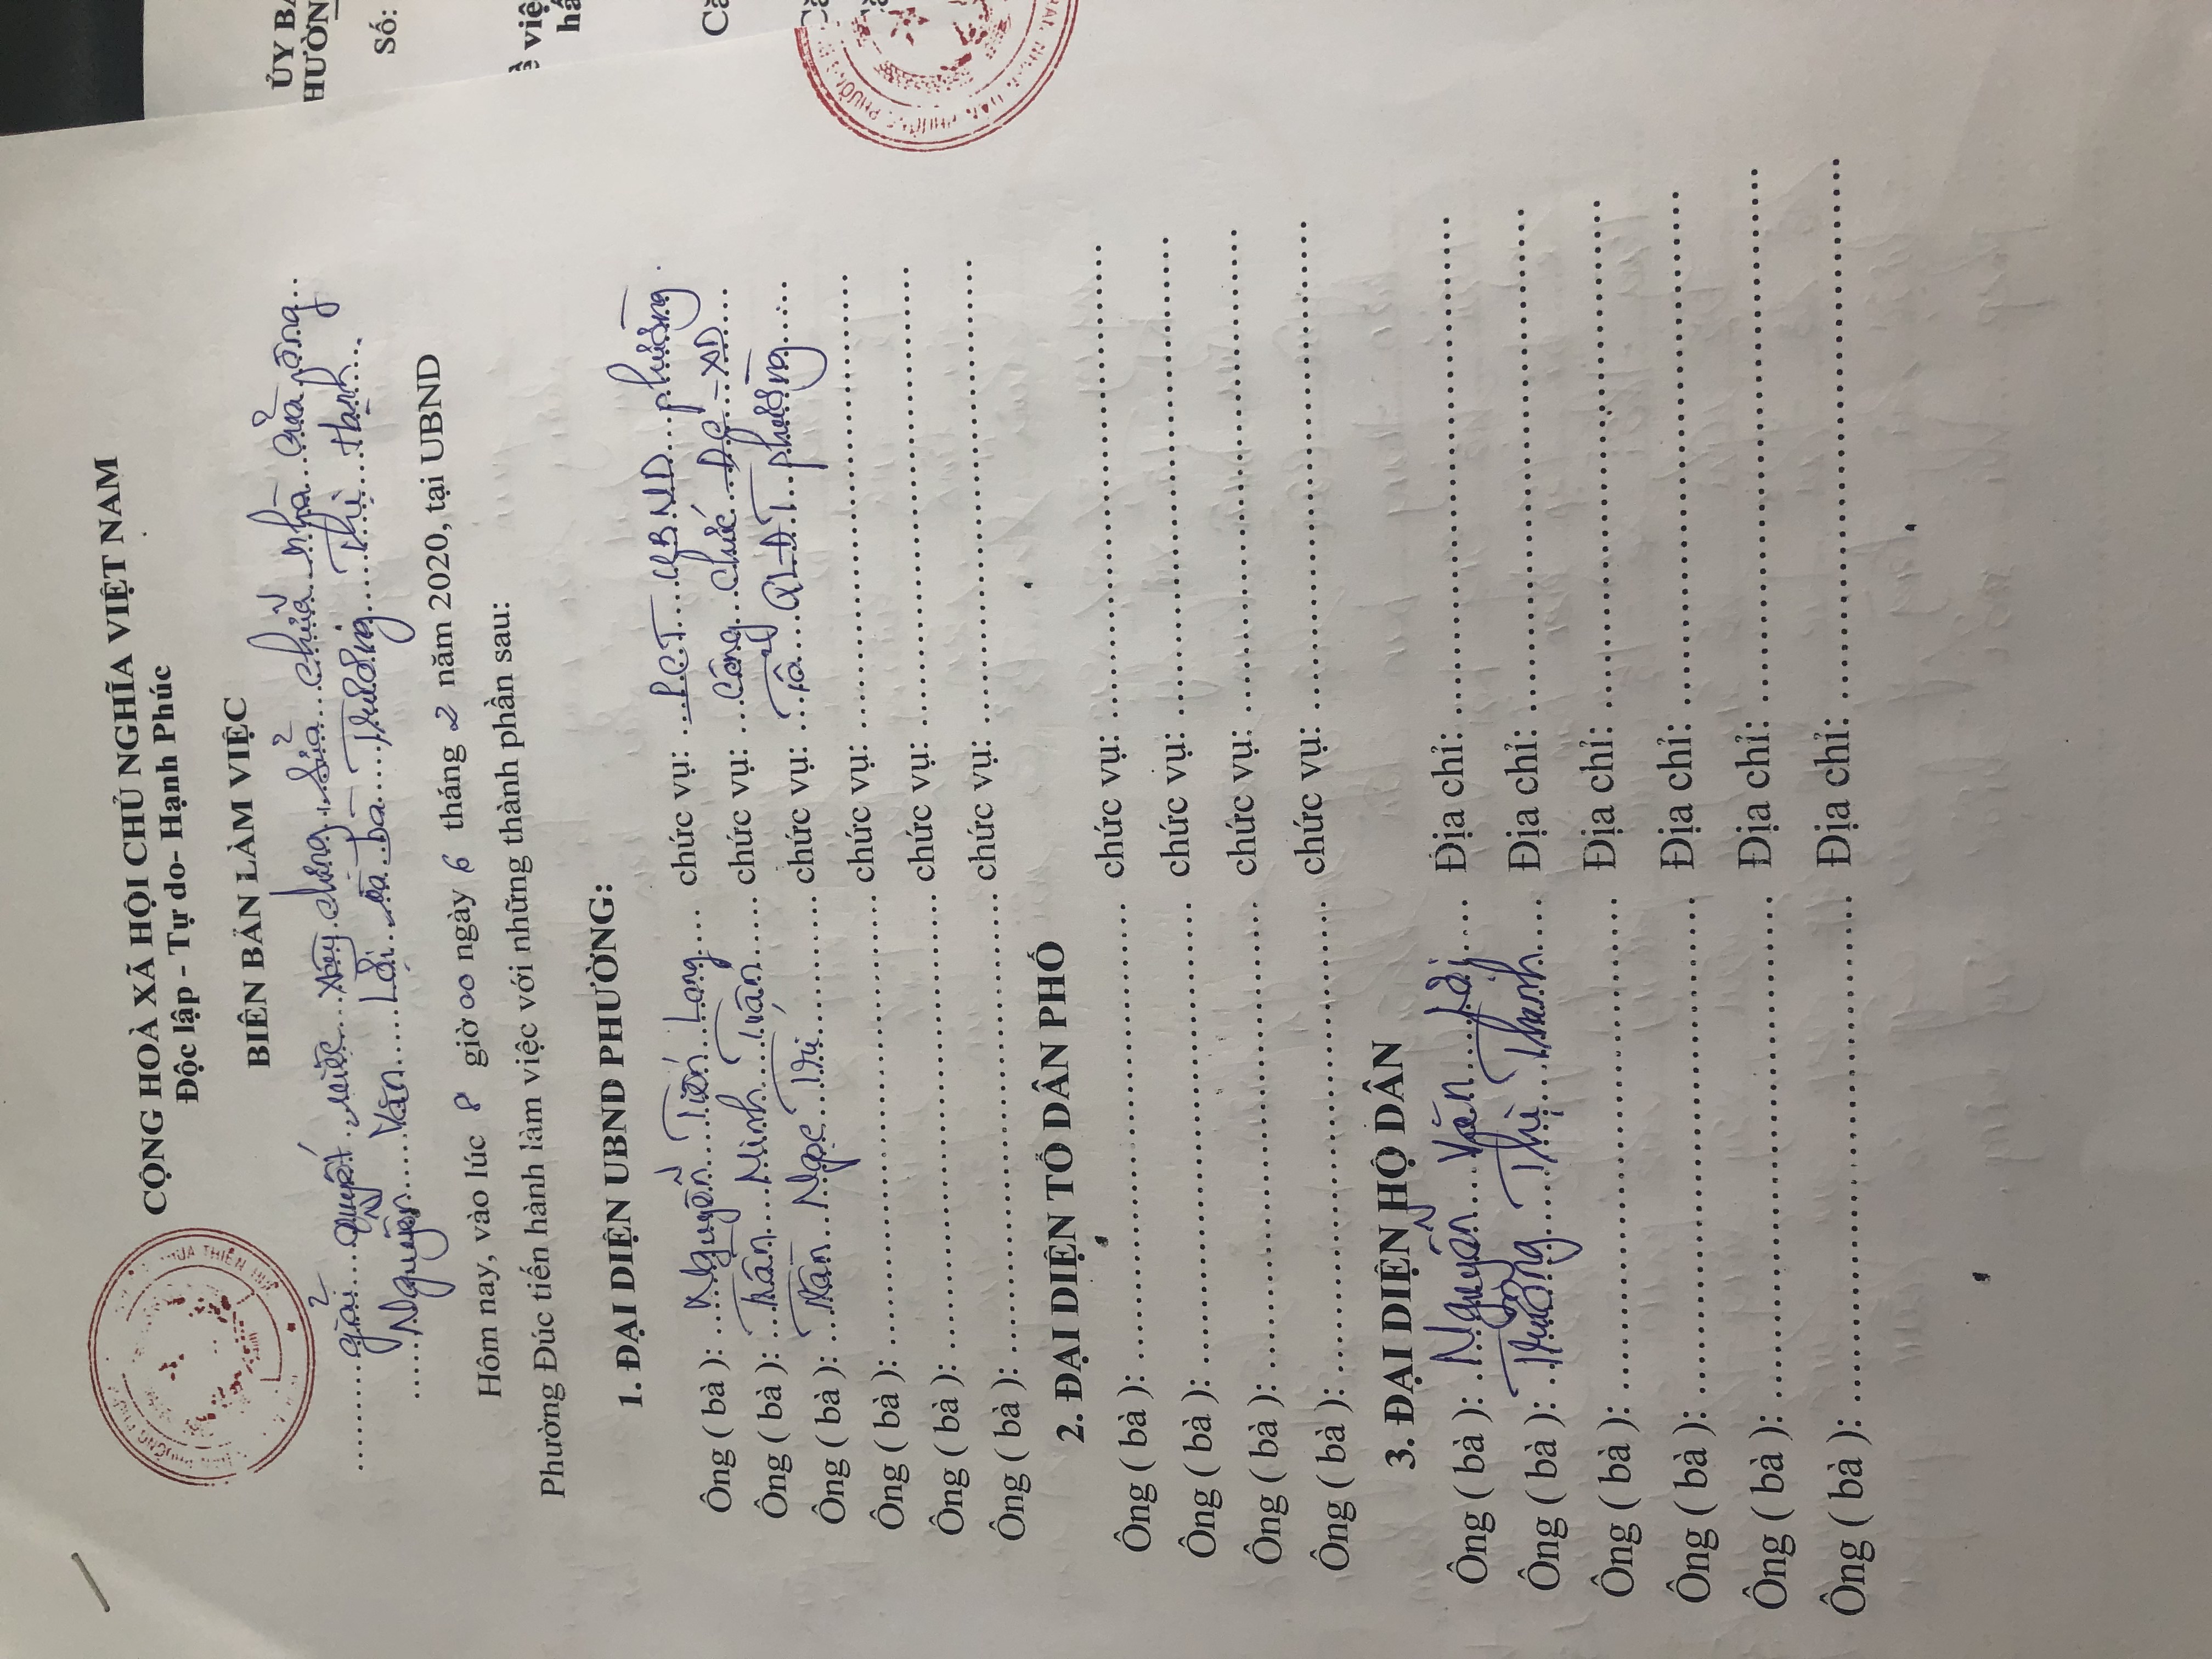 CỘNG HOÀ XÃ HỘI CHỦ NGHĨA VIỆT NAM
Độc lập - Tự do- Hạnh Phúc
BIÊN BẢN LÀM VIỆC
..........giải...quyết..việc...xây dựng, sửa...chữa..nhà...của ông...
......Nguyễn......Văn.....Lợi...và bà....Trương....Thị....Hạnh....
Hôm nay, vào lúc 8 giờ 00 ngày 6 tháng 2 năm 2020, tại UBND
Phường Đúc tiến hành làm việc với những thành phần sau:
1. ĐẠI DIỆN UBND PHƯỜNG:
Ông ( bà ): ...Nguyễn...Tiến..Long.... chức vụ: ...PCT...UBND...phường.
Ông ( bà ): ...Trần....Minh..Tuấn..... chức vụ: ...Công...chức...ĐC...-XD...
Ông ( bà ): ...Trần...Ngọc..Trí........... chức vụ: ...Tổ.... QLĐT..phường....
Ông ( bà ): ........................................ chức vụ: ........................................
Ông ( bà ): ........................................ chức vụ: ........................................
Ông ( bà ): ........................................ chức vụ: ........................................
2. ĐẠI DIỆN TỔ DÂN PHỐ
Ông ( bà ): ........................................ chức vụ: ........................................
Ông ( bà ): ........................................ chức vụ: ........................................
Ông ( bà ): ........................................ chức vụ: ........................................
Ông ( bà ): ........................................ chức vụ: ........................................
3. ĐẠI DIỆN HỘ DÂN
Ông ( bà ): ..Nguyễn...Văn....Lợi.... Địa chỉ: ........................................
Ông ( bà ): ..Trương....Thị...Thanh..... Địa chỉ: ........................................
Ông ( bà ): ........................................ Địa chỉ: ........................................
Ông ( bà ): ........................................ Địa chỉ: ........................................
Ông ( bà ): ........................................ Địa chỉ: ........................................
Ông ( bà ): ........................................ Địa chỉ: ........................................
THỪA THIÊN HUẾ
ỦY BA
HƯỜN
Số:
việ